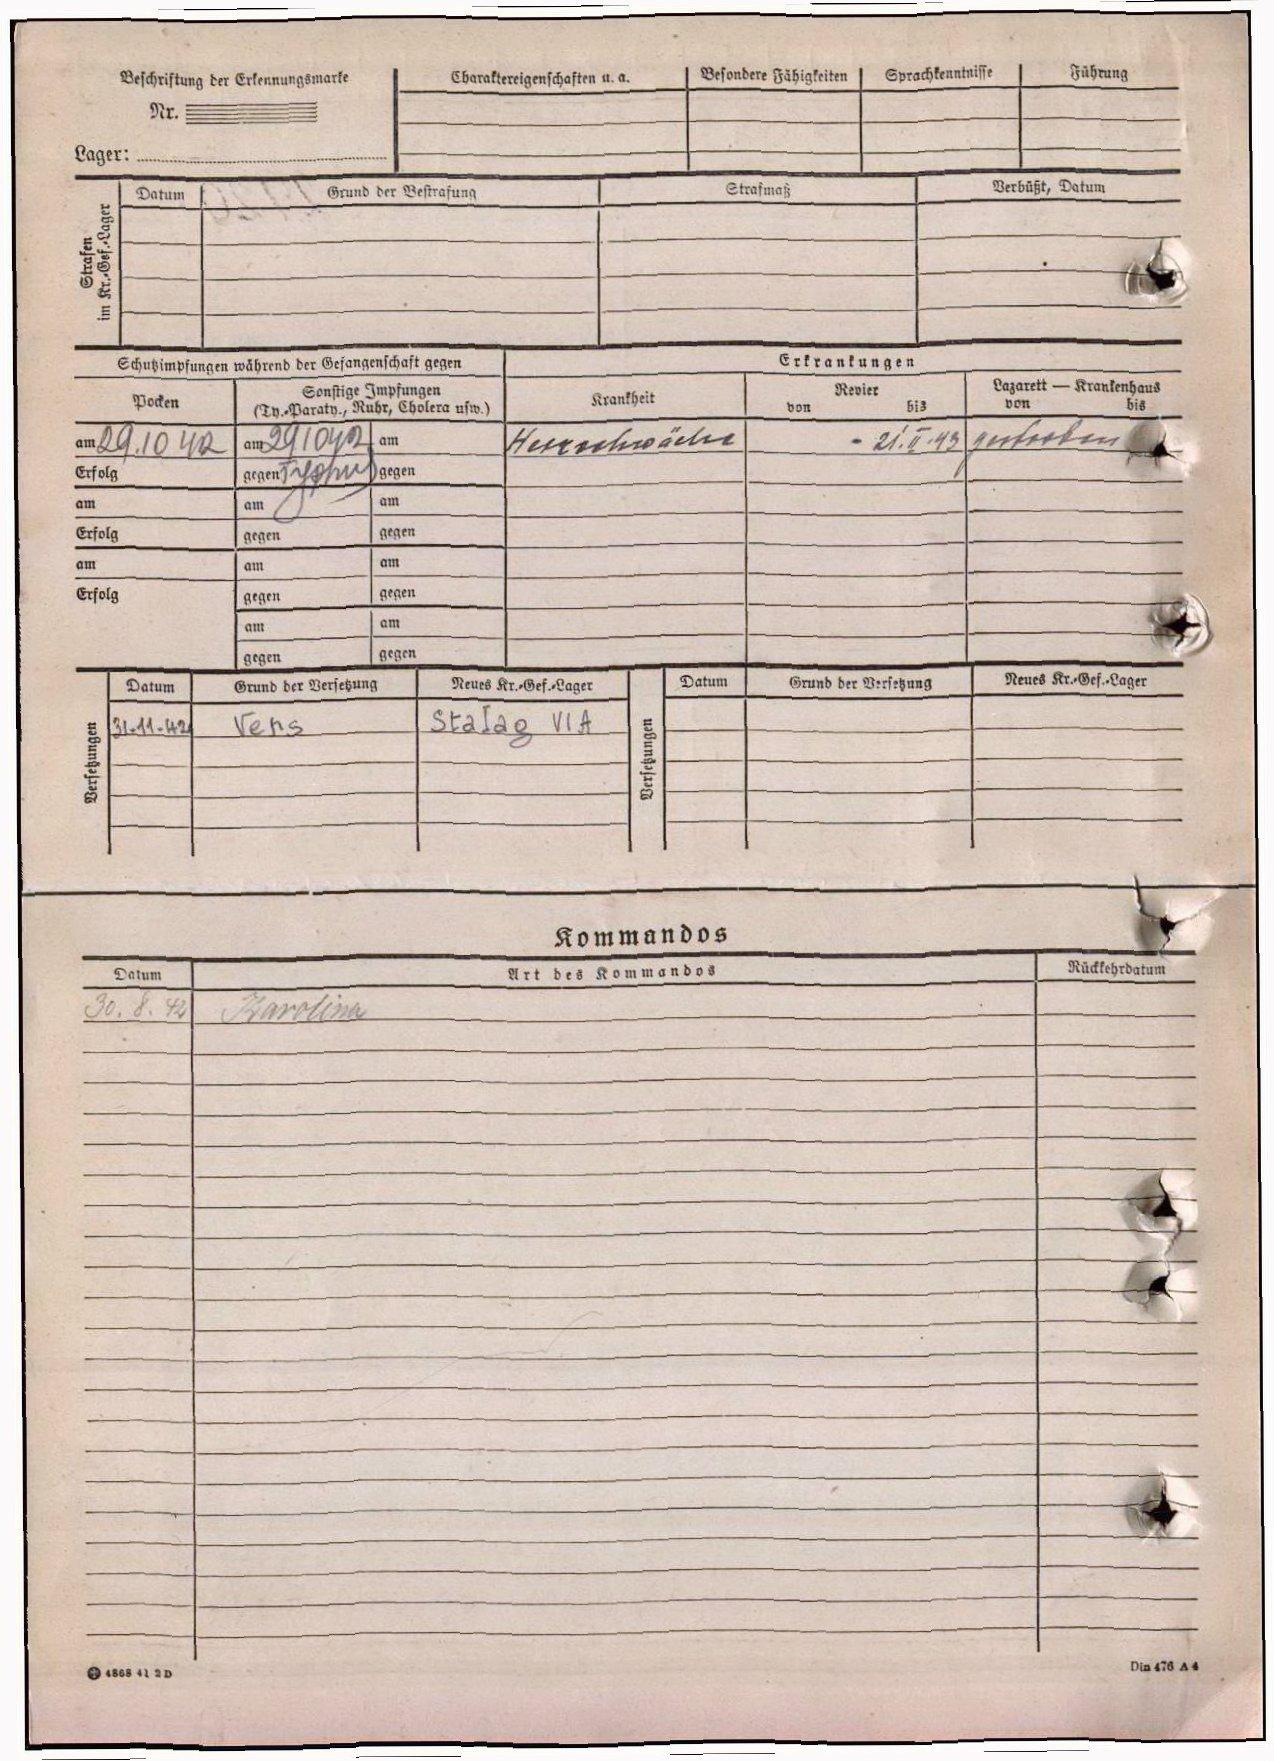 Beschriftung der Erkennungsmarke
Nr.
Lager:
Charaktereigenschaften u. a.
Besondere Fähigkeiten
Sprachkenntnisse
Führung
Strafen
im Kr.-Gef.-Lager
Datum
Grund der Bestrafung
Strafmaß
Verbüßt, Datum
Schutzimpfungen während der Gefangenschaft gegen
Erkrankungen
Pocken
Sonstige Impfungen
(Ty.-Paraty., Ruhr, Cholera usw.)
Krankheit
Revier
von bis
Lazarett — Krankenhaus
von bis
am 29.10 42 am 29 10 42 am
Herzschwäche - 21.II.43 gestorben
Erfolg gegen Typhus gegen
am am am
Erfolg gegen gegen
am am am
Erfolg gegen gegen
am am
gegen gegen
Versetzungen
Datum Grund der Versetzung Neues Kr.-Gef.-Lager
31.11.42 Vers Stalag VIA
Versetzungen
Datum Grund der Versetzung Neues Kr.-Gef.-Lager
Kommandos
Datum Art des Kommandos Rückkehrdatum
30. 8. 42 Karolina
4868 41 2 D
Din 476 A 4